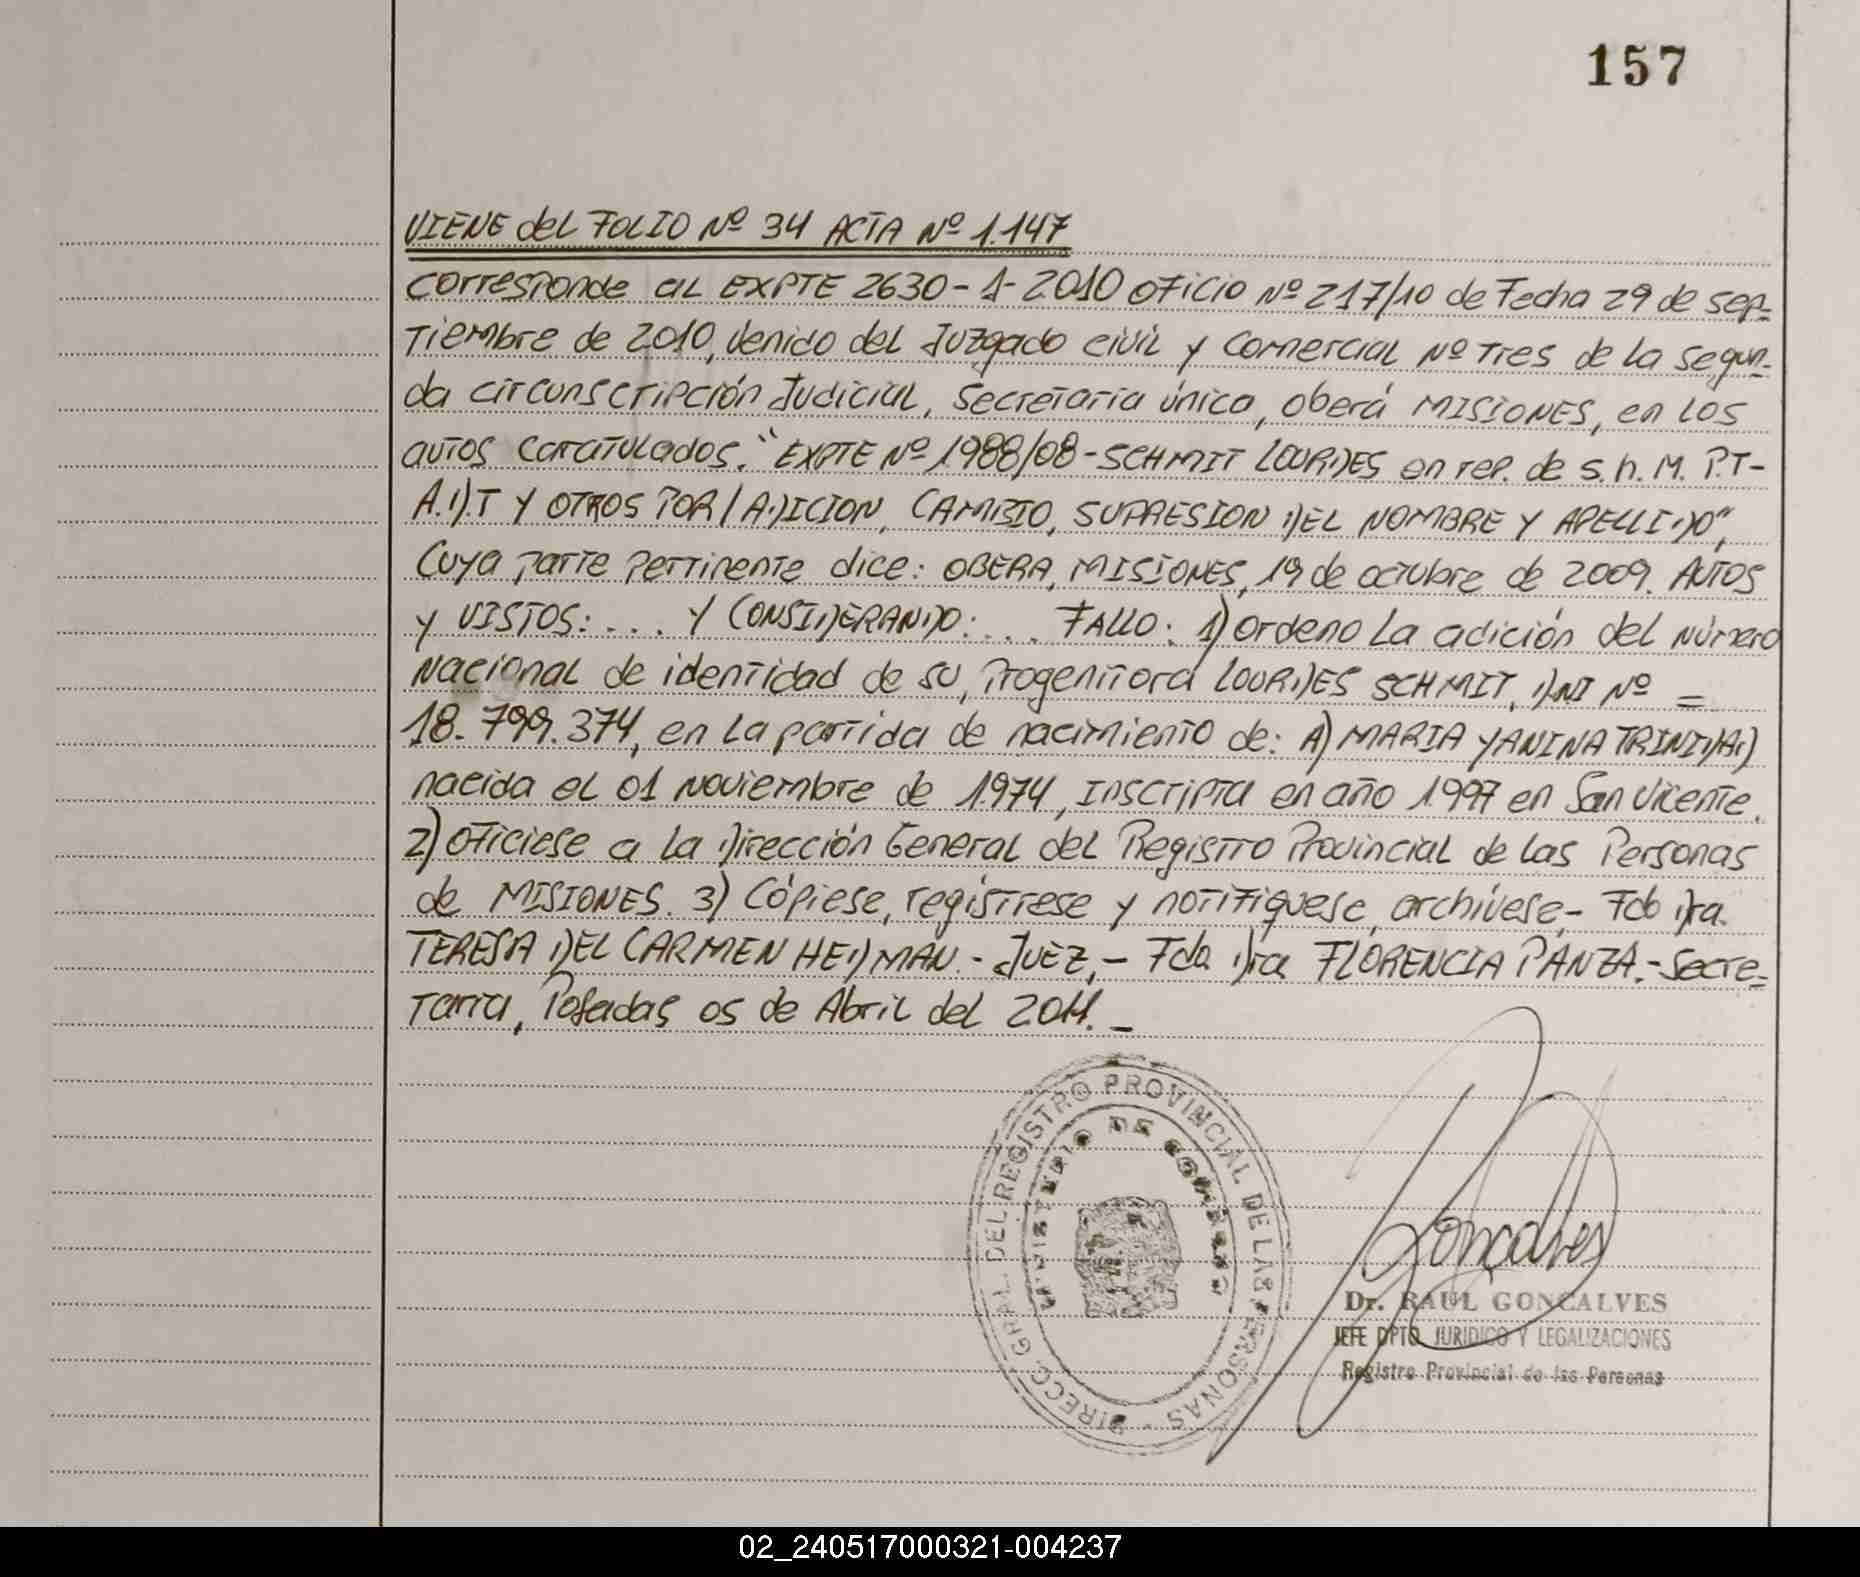 157
VIENE del FOLIO Nº 34 ACTA Nº 1.147
Corresponde al EXPTE 2630-1-2010 oficio Nº 217/10 de Fecha 29 de sep-
tiembre de 2010, venido del Juzgado civil y Comercial Nº Tres de la segun-
da circunscripción Judicial, Secretaria única, oberá MISIONES, en los
autos caratulados. "EXPTE Nº 1988/08-SCHMIT LOURDES en rep. de s.h.M. P.T-
A.D.T Y OTROS POR/ADICION, CAMBIO, SUPRESION DEL NOMBRE Y APELLIDO",
Cuya parte pertinente dice: OBERA, MISIONES, 19 de octubre de 2009. AUTOS
y VISTOS: ... Y CONSIDERANDO: ... FALLO: 1) ordeno la adición del Número
Nacional de identidad de su, Progenitora LOURDES SCHMIT, DNI Nº =
18.799.374, en la partida de nacimiento de: A) MARIA YANINA TRINIDAD
nacida el 01 Noviembre de 1.974, Inscripta en año 1.997 en San Vicente.
2) ofíciese a la Dirección General del Registro Provincial de las Personas
de MISIONES. 3) Cópiese, regístrese y notifíquese, archívese,- Fdo Dra.
TERESA DEL CARMEN HEDMAN.- JUEZ,- Fdo Dra FLORENCIA PANZA.-Secre-
taria, Posadas 05 de Abril del 2011. -
DIRECC. GRAL. DEL REGISTRO PROVINCIAL DE LAS PERSONAS -
MINISTERIO DE GOBIERNO
Goncalves
Dr. RAUL GONCALVES
JEFE DPTO. JURIDICO Y LEGALIZACIONES
Registro Provincial de las Personas
02_240517000321-004237